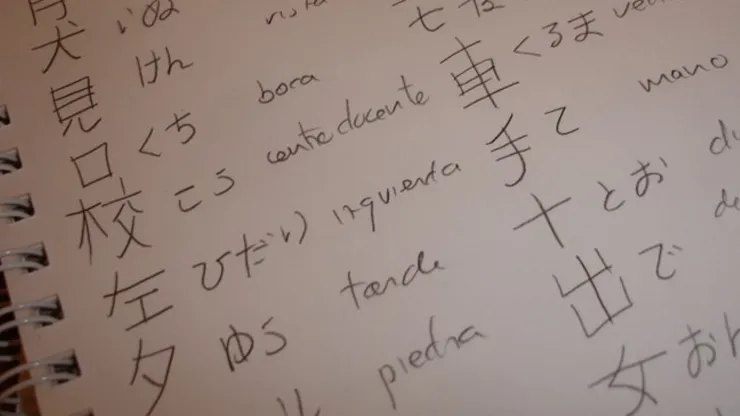 犬 いぬ
見 けん
口 くち boca 七
校 こう centro docente 車 くるま
左 ひだり izquierda 手 て mano
夕 ゆう tarde 十 とお
piedra 出 で
女 お